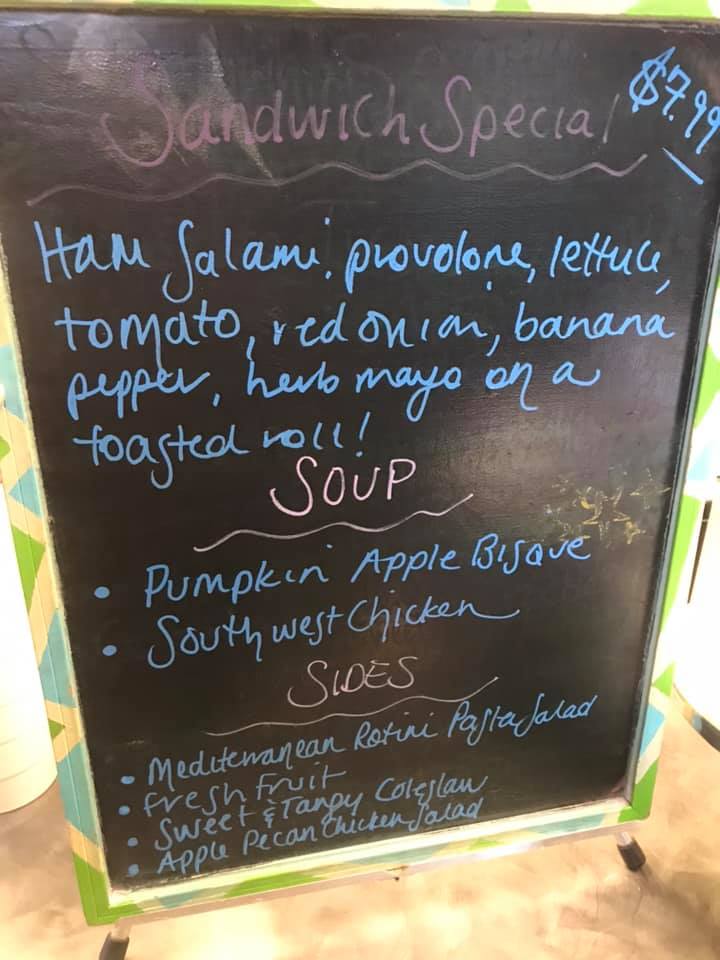 Sandwich Special $7.99
Ham Salami, provolone, lettuce,
tomato, red onion, banana
pepper, herb mayo on a
toasted roll!
SOUP
• Pumpkin Apple Bisque
• Southwest Chicken
SIDES
• Mediterranean Rotini Pasta Salad
• fresh fruit
• Sweet & Tangy Coleslaw
• Apple Pecan Chicken Salad